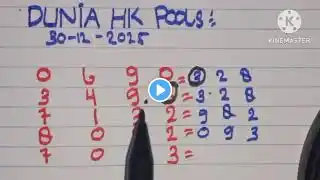 DUNIA HK POOLS :
30-12-2025
KINEMASTER
0 6 9 0 = 3 2 8
3 4 9 = 3 2 8
7 1 2 = 9 8 2
8 0 2 = 0 9 3
7 0 3 =